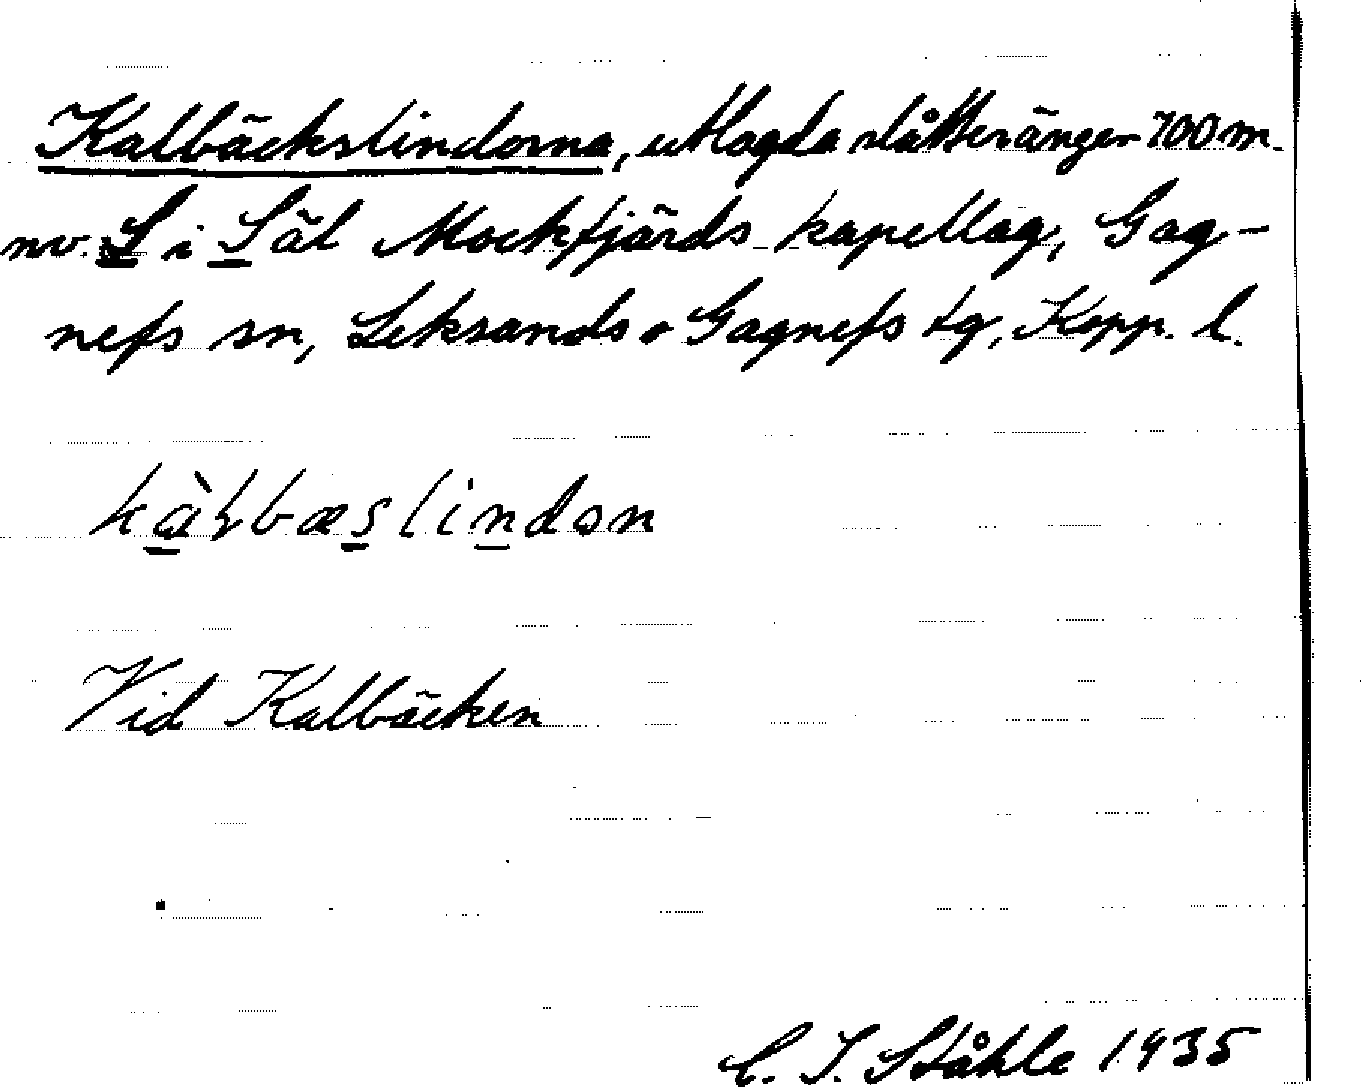 Kalbäckslindorna, utlagda slåtteränger 700 m.
nv. S i Säl Mockfjärds kapellag, Gag-
nefs sn, Leksands o Gagnefs tg, Kopp. l.
Vid Kalbäcken
C. I. Ståhle 1935